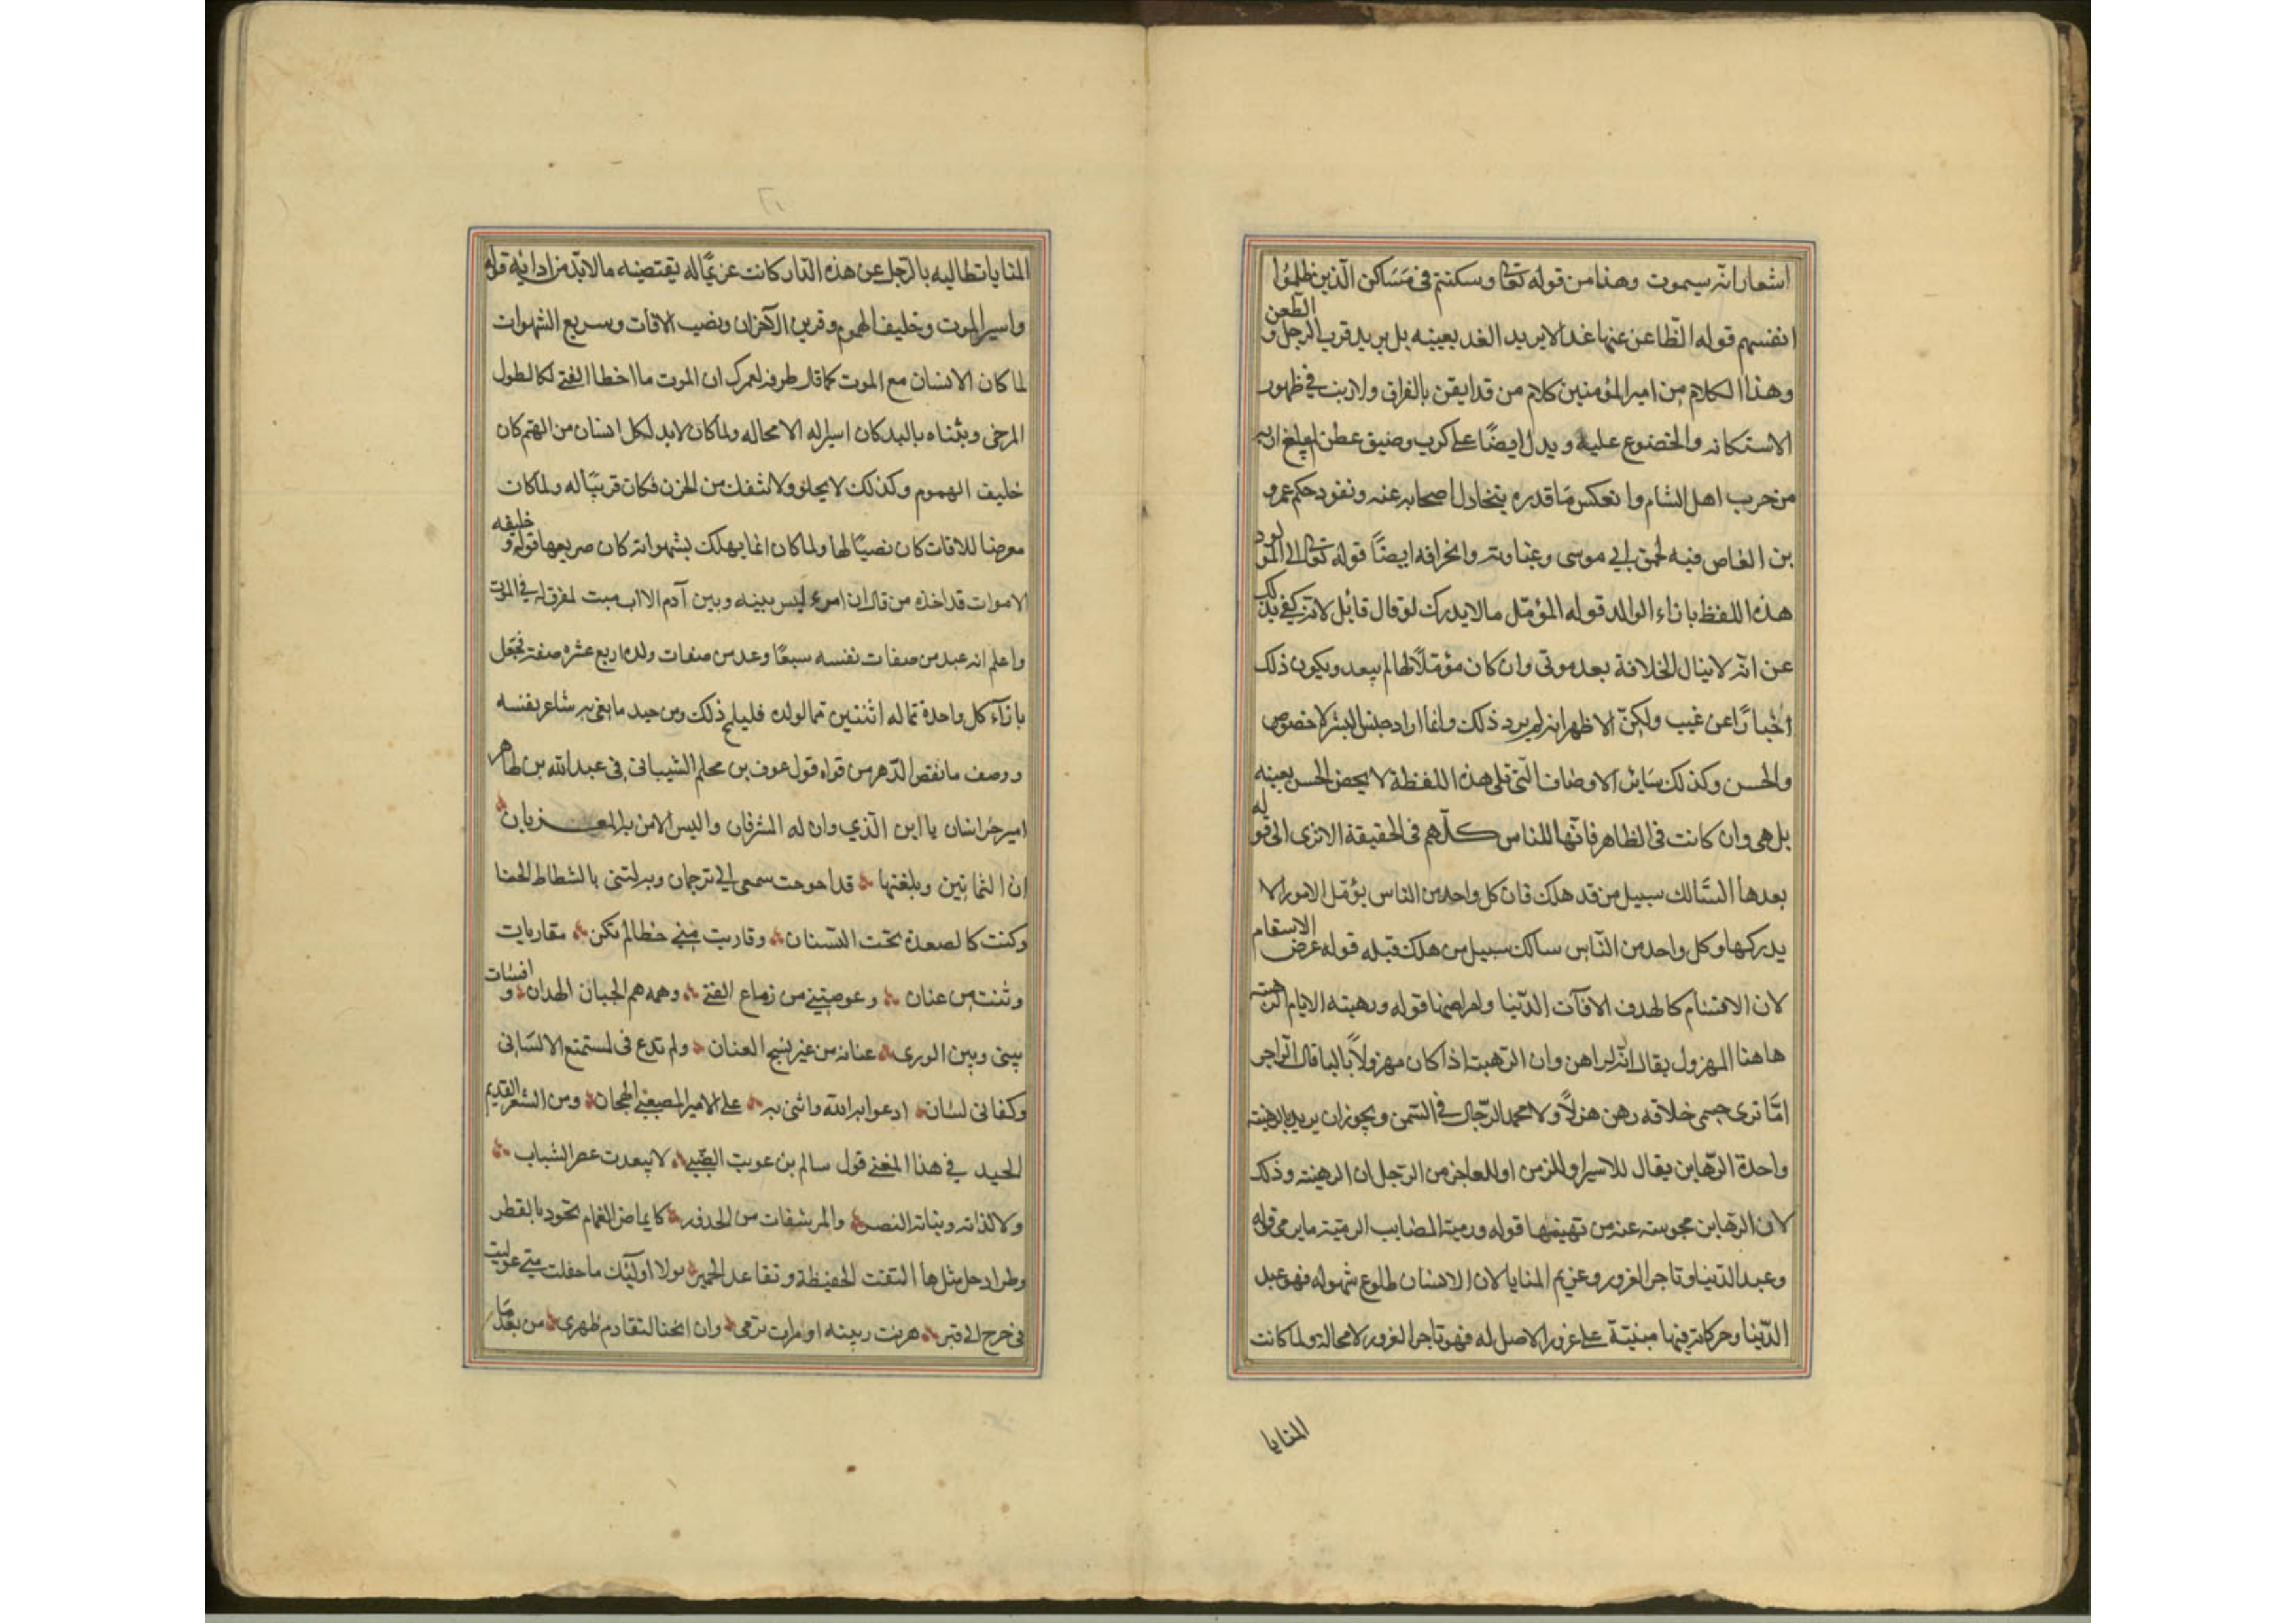 اشعارا انه سيموت وهذا من قوله تعالى وسكنتم في مساكن الذين ظلموا
انفسهم قوله الظاعن عنها غدا لا يريد الغد بعينه بل يريد قرب الرحيل و الظعن
وهذا الكلام من امير المؤمنين كلام من قد ايقن بالفراق ولا ريب في ظهور
الاستكانه والخضوع عليه ويدل ايضًا على كرب وضيق عطن
من حرب اهل الشام وانعكس ما قدره بتخاذل اصحابه عنه ونفود حكم عمرو
بن العاص فيه لحمق ابي موسى وغباوته وانحرافه ايضًا قوله تعالى الى المولود
هذه اللفظ بازاء الوالد قوله المؤمل مالا يدرك لو قال قائل لانه كنى بذلك
عن انه لا ينال الخلافة بعد موتى وان كان مؤملًا لها لم يبعد ويكون ذلك
اخبارًا عن غيب ولكنّ الاظهر انه لم يرد ذلك وانما اراد جنس البشر لا خصوص
والحسن وكذلك سائر الاوصاف التي تلى هذه اللفظة لا يخص الحسن بعينه
بل هى وان كانت فى الظاهر فانها للناس كلّهم فى الحقيقة الا ترى الى قوله
بعدها السّالك سبيل من قد هلك فان كل واحد من الناس يؤمل الامور الا
يدركها وكل واحد من النّاس سالك سبيل من هلك قبله قوله عرض الاسقام
لان الا كالهدف الافآت الدّنيا وامراضها قوله ورهينة الايام الرهينة
هاهنا المهزول يقال انّه لراهن وان الرّهبت اذا كان مهزولاً بالبا قال الراجز
امّا ترى جسمى خلاقه رهن هزلاً ولا محمد الرّجال في السّمن ويجوز ان يريد بالرهينة
واحدة الرّهاين يقال للاسير او للزمن او للعاجز من الرّجل ان الرهينة وذلك
لان الرّهاين محبوسة عند من تهينها قوله ورمية المصايب الرميّة ما يرمى قوله
وعبد الدّنيا وتاجر الغرور وغريم المنايا لان الانسان طلوع شهوله فهو عبد
الدّنيا وحركاته فيها مبنيّة على غرور الاصل له فهو تاجر الغرور لا محالة ولما كانت
المنايا
المنايا تطالبه بالرّحيل عن هذه الدّار كانت غريمًا له يقتضيه ما لا بدّ من ادائه قوله
واسير الموت وخليف الهموم وقرين الاحزان ونصب الافات وسريع الشهوات
لما كان الانسان مع الموت كما قال طرفه لعمرك ان الموت ما اخطا الفتى لكالطول
المرخى وثناه باليد كان اسيرا له لا محاله ولما كان لا بد لكل انسان من الهم كان
خليف الهموم وكذلك لا يخلو ولا ينفك من الحزن فكان قرينًا له ولما كان
معرضا للافات كان نصبًا لها ولما كان انما يهلك بشهواته كان صريعها قوله و خليفه
الاموات قد اخذه من قال ان امرء ليس بينه وبين آدم الا اب ميت لمغرق له في الموت
واعلم انه عبد من صفات نفسه سبعًا وعد من صفات ولده اربع عشره صفة فجعل
بازآء كل واحدة مما له اثنتين مما لولده فليلمح ذلك ومن جيد ما بغى به شاعر نفسه
ووصف ما نقص الدّهر من قواه قول عوف بن محلم الشيبانى فى عبد الله بن طاهر
امير خراسان يا ابن الّذي وان له المشرقان والبس الامن به المغربان
ان الثمانين وبلغتها قد احوجت سمعي الى ترجمان وبدلتنى بالشطاط الحنا
وكنت كالصعدة تحت السّنان وقاربت مني خطا لم تكن مقاربات
وثنت من عنان وعوضتني من زماع الفتى وهمه هم الجبان الهدان و انشات
بينى وبين الورى عنانه من غير نسج العنان ولم تدع فى لمستمتع الا لسانى
وكفانى لسان ادعوا به الله واثنى به على الامير المصعبى الهجان ومن الشعر القديم
الجيد في هذا المعنى قول سالم بن عويت الضبي لا يبعدت عصر الشباب
ولا لذاته ونباته النصر والمرشفات من الخدور كايماض الغمام يجود بالقطر
وطراد خيل مثلها التقت الحفيظة وتقاعد الخمير لولا اولئك ما حفلت متى عوليت
فى حرج الى قبر هربت ربيبة او رات ترمى وان انحنا لتقادم ظهرى من بعد ما